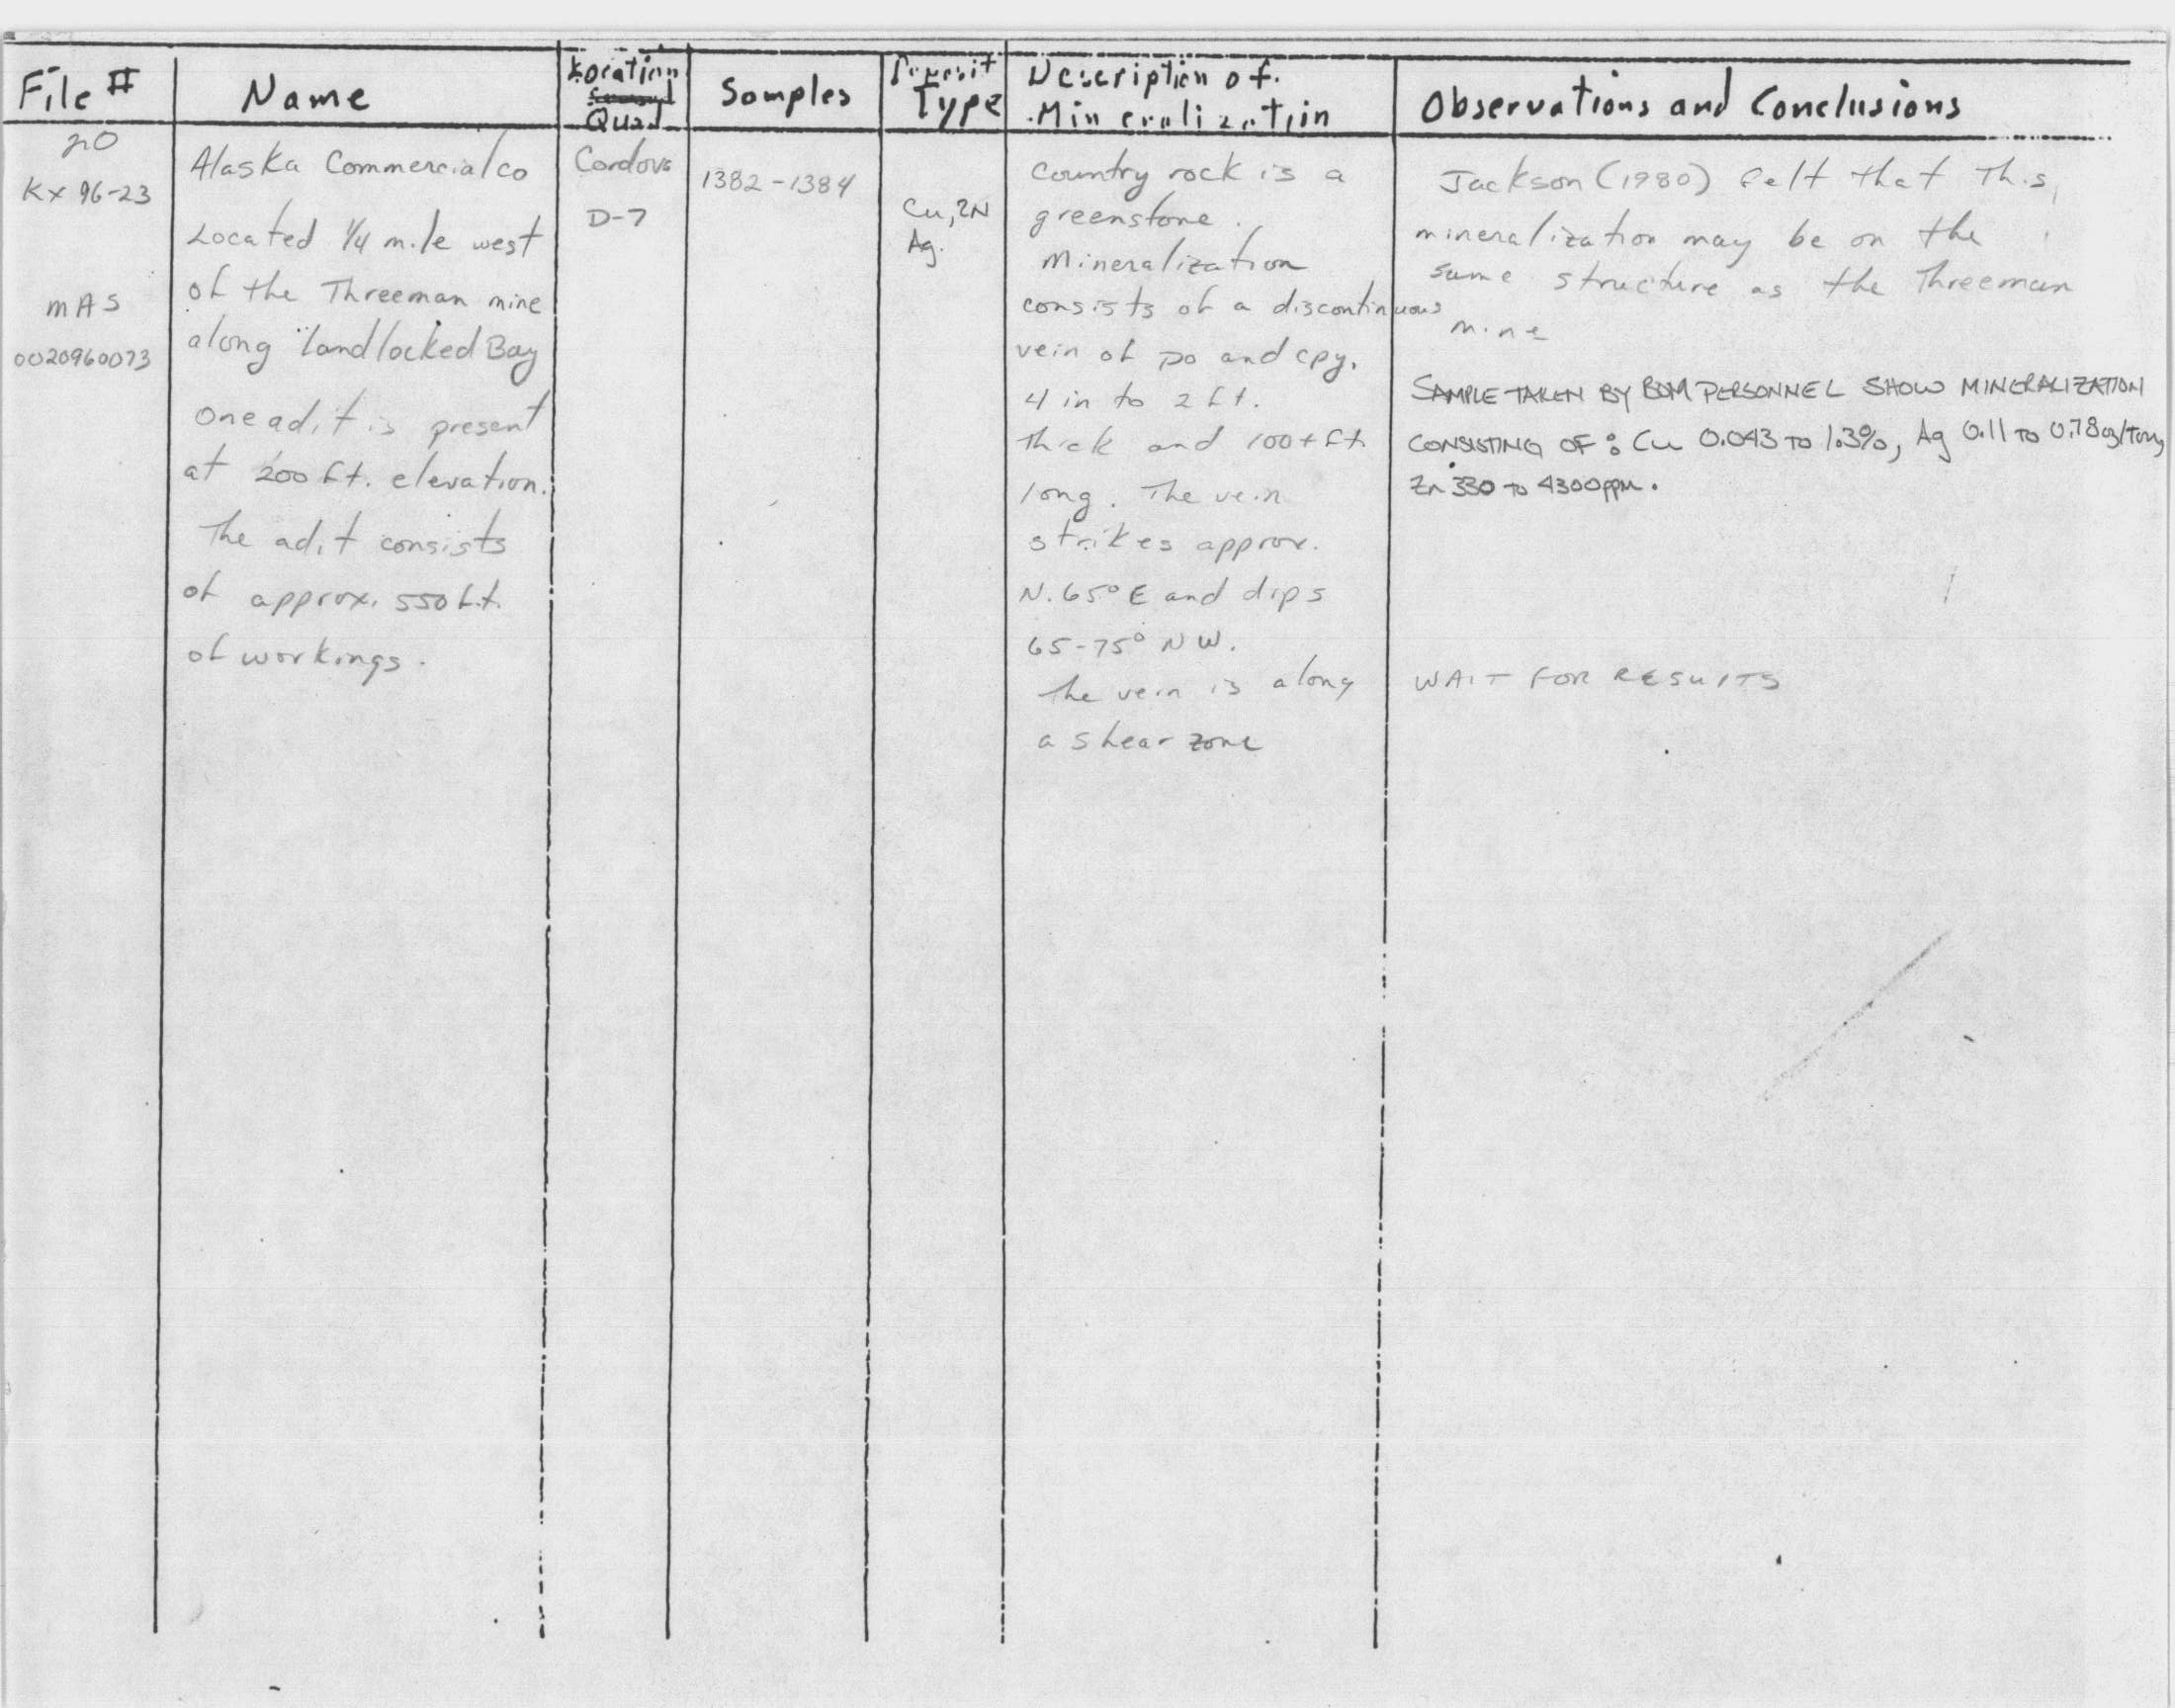 File #
Name
Location
Quad
Samples
Deposit
Type
Description of
Mineralization
Observations and Conclusions
20
Kx 96-23
MAS
0020960073
Alaska Commercial co
Located 1/4 mile west
of the Threeman mine
along Landlocked Bay
One adit is present
at 200 ft. elevation.
The adit consists
of approx. 550 ft.
of workings.
Cordova
D-7
1382-1384
Cu, ZN
Ag.
Country rock is a
greenstone.
Mineralization
consists of a discontinuous
vein of po and cpy.
4 in to 2 ft.
thick and 100+ ft
long. The vein
strikes approx.
N. 65° E and dips
65-75° NW.
The vein is along
a shear zone
Jackson (1980) felt that this
mineralization may be on the
same structure as the Threeman
mine
SAMPLE TAKEN BY BOM PERSONNEL SHOW MINERALIZATION
CONSISTING OF: Cu 0.043 TO 1.3%, Ag 0.11 TO 0.78 oz/Ton,
Zn 330 TO 4300 ppm.
WAIT FOR RESULTS